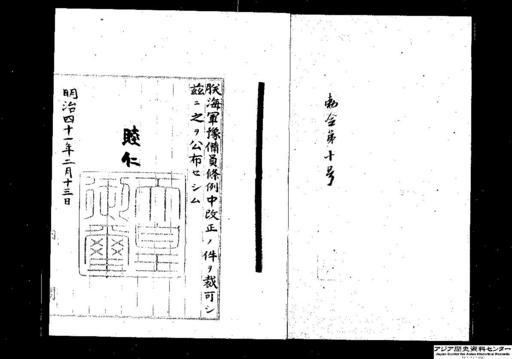 勅令第十号
朕海軍豫備員條例中改正ノ件ヲ裁可シ
茲ニ之ヲ公布セシム
睦仁
天皇御璽
明治四十一年二月十三日
アジア歴史資料センター
Japan Center for Asian Historical Records